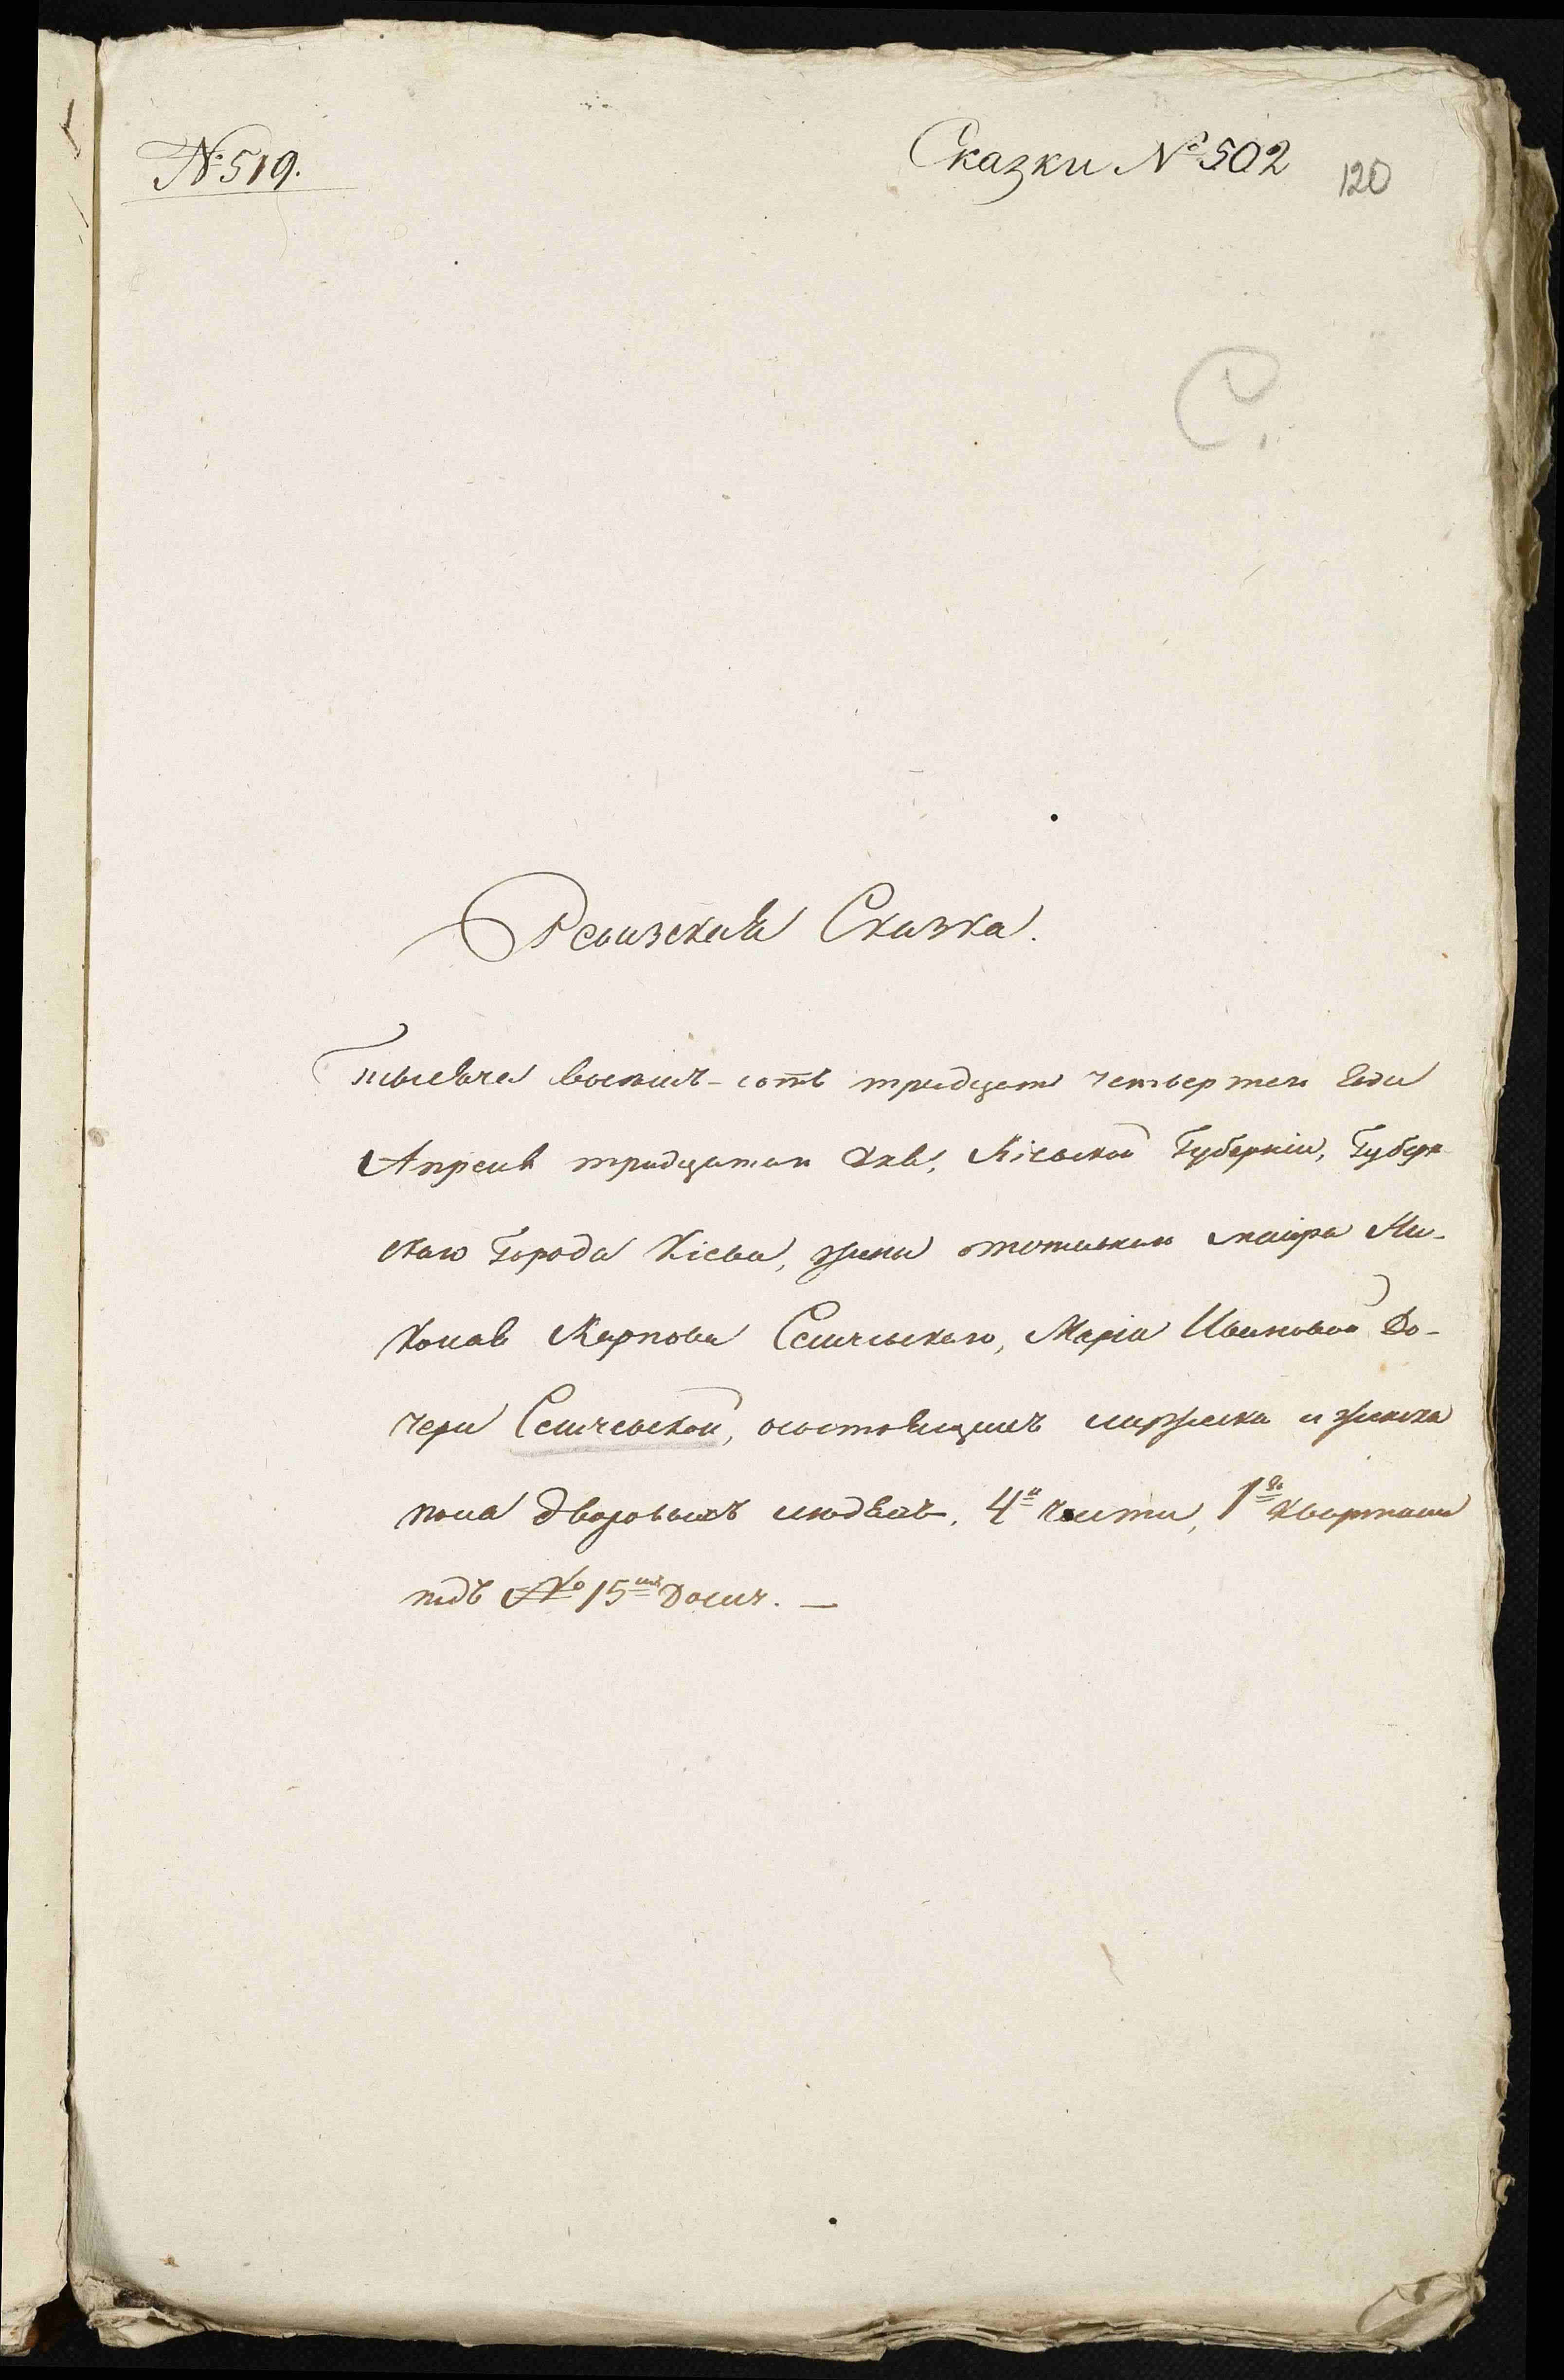 № 519.
Сказки № 502
120
С.
Ревизская Сказка.
Тысяча восемь-сотъ тридцать четвертаго года
Апреля тридцатаго дня, Кіевской Губерніи, Губерн
скаго Города Кіева, жены отставнаго маіора Ни-
колая Карпова Селичевскаго, Маріи Ивановой До-
чери Селичевской, о состоящихъ мужеска и женска
пола дворовыхъ людяхъ. 4й части, 1го квартала
подъ № 15мъ Домъ. —